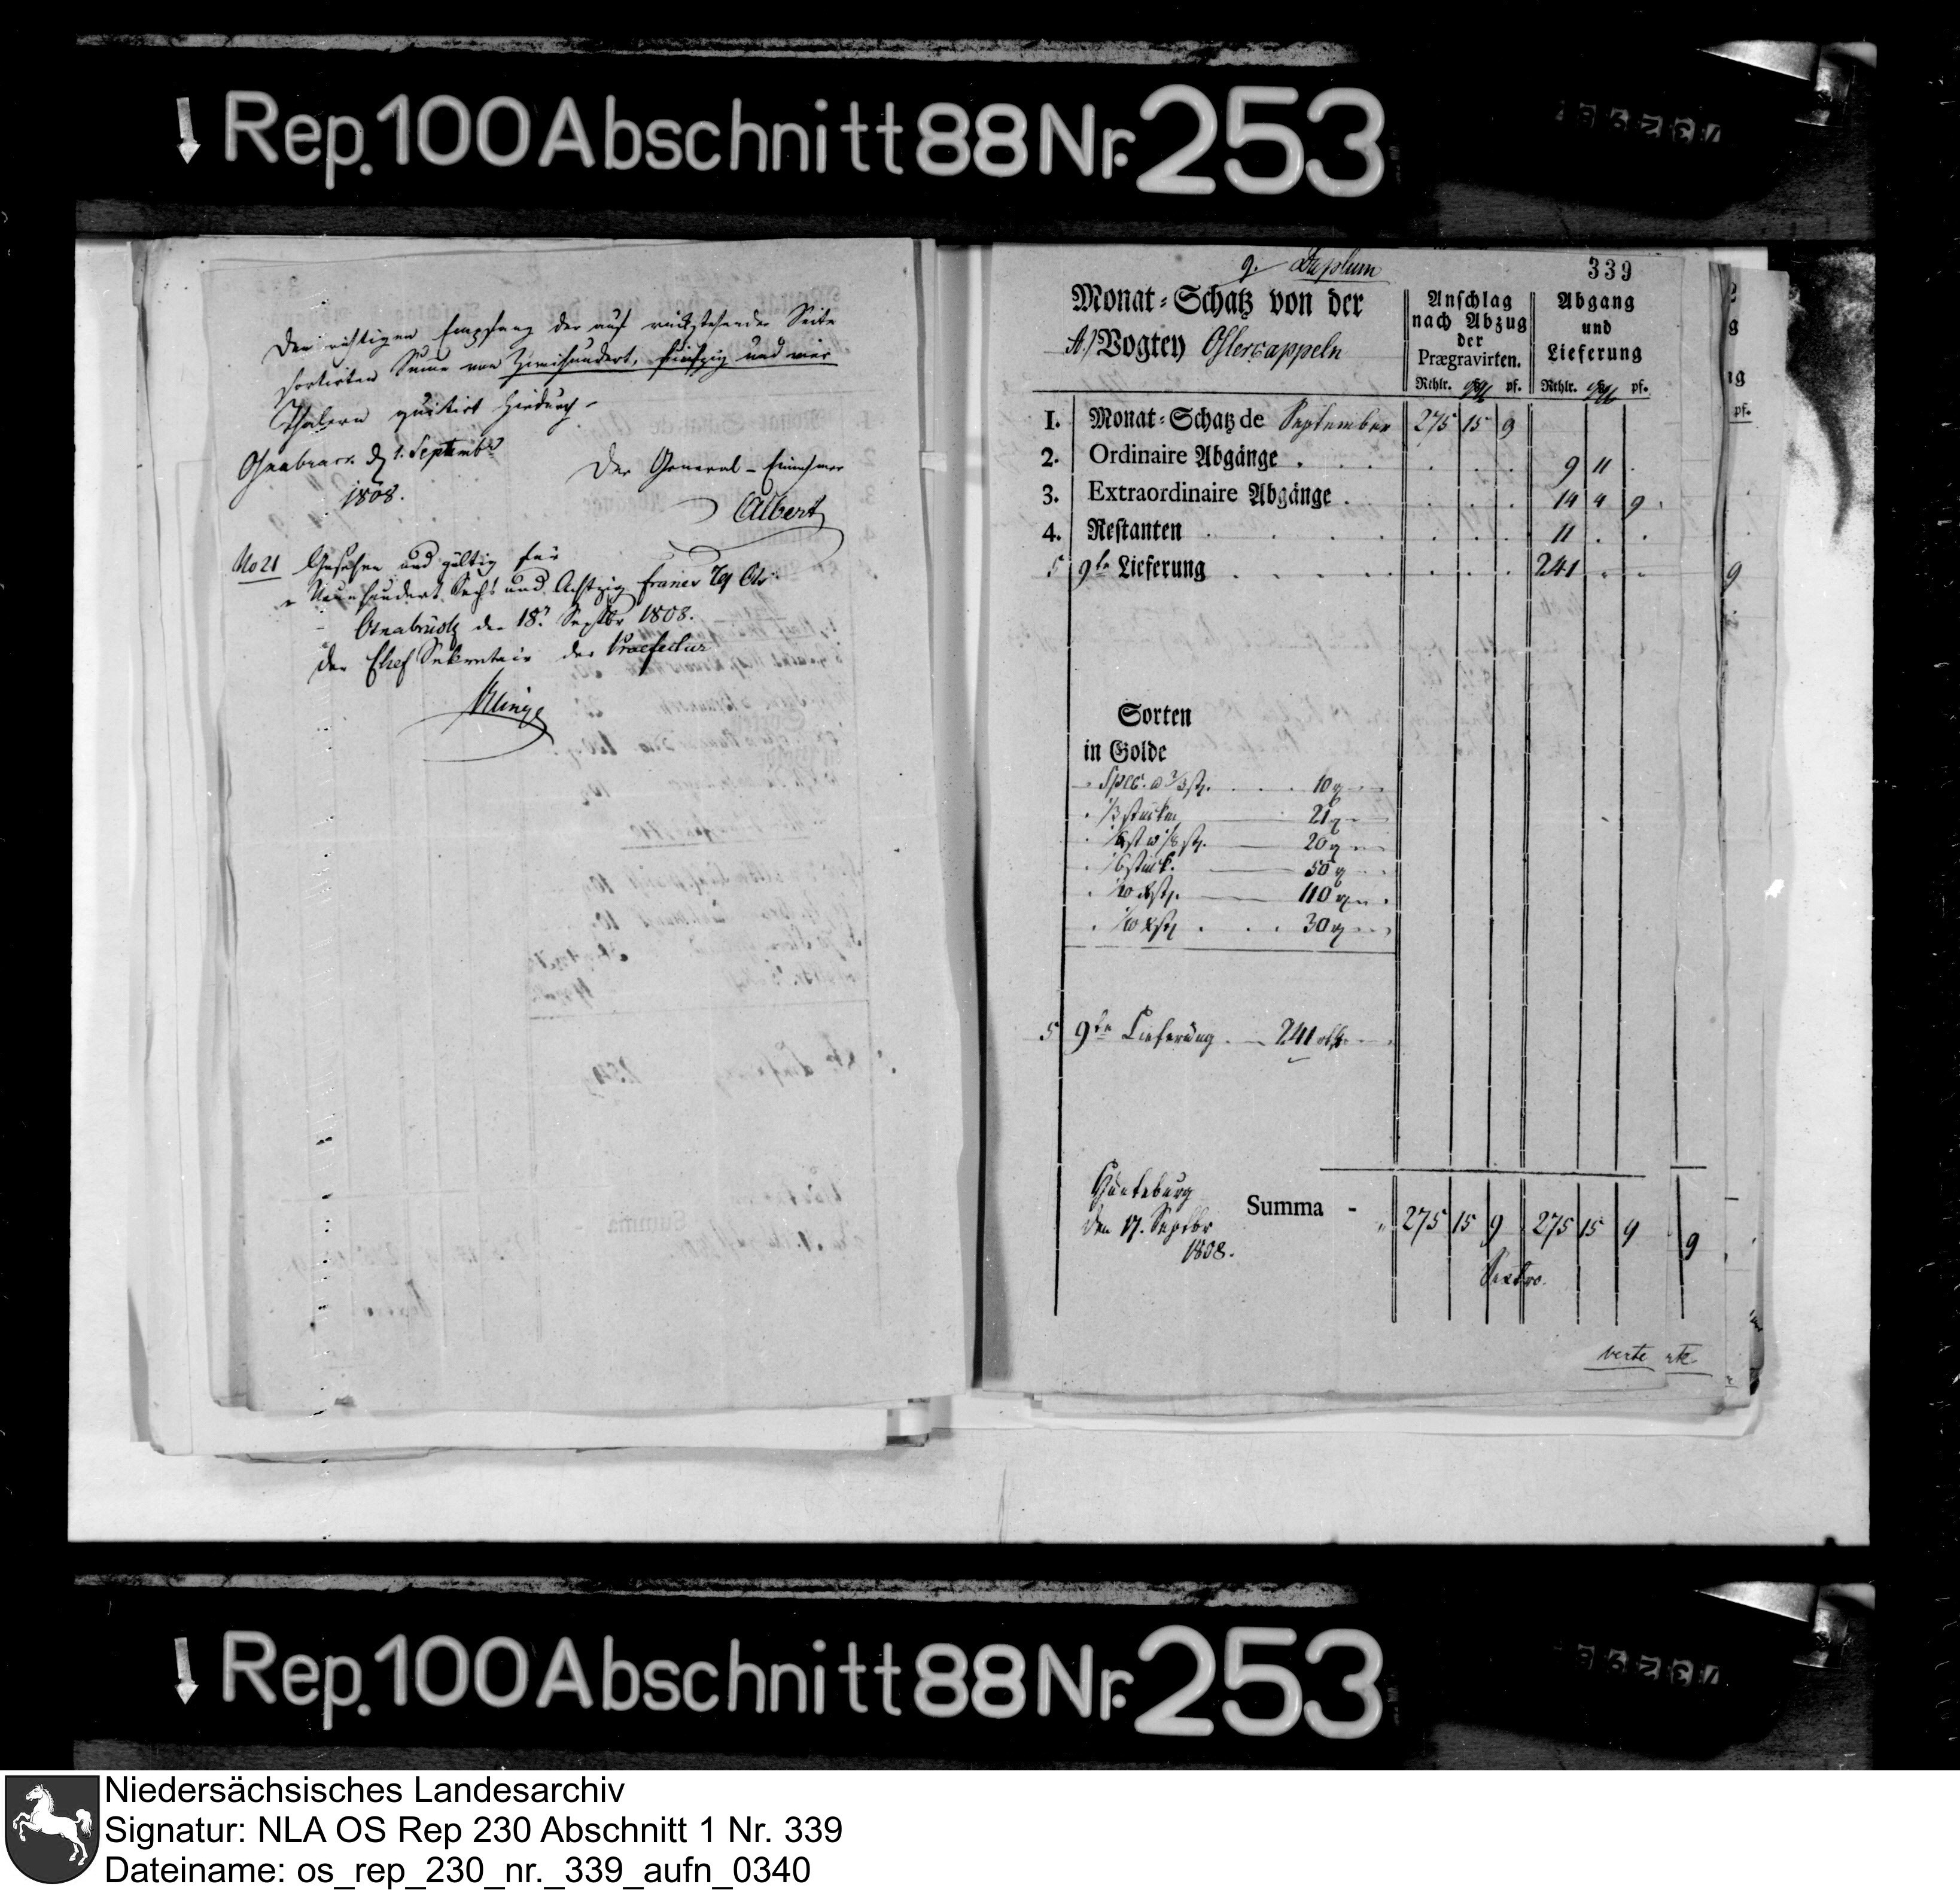 Rep.100 Abschnitt 88 Nr. 253
Den richtigen Empfang der auf rückstehender Seite
sortirten Summe von Zweihundert, fünfzig und vier
Thalern quitirt hiedurch.
Osnabrück d 1. Septembr
1808.
Der General-Einnehmer
Albert
No 21 Gesehen und gültig für
Neunhundert Sechs und Achtzig francs 79 Cts
Osnabrück den 18t Septbr 1808.
Der Chef Sekretair der Praefectur
Klinge
9. Duplum
339
Monat-Schatz von der
A./ Vogtey Ostercappeln
Anschlag nach Abzug der Prægravirten.
Rthlr. pf.
Abgang und Lieferung
Rthlr. pf.
1. Monat-Schatz de September 275 15 9
2. Ordinaire Abgänge 9 11
3. Extraordinaire Abgänge 14 4 9
4. Restanten 11
5 9te Lieferung 241
Sorten
in Golde
Spec. 2/3 st. 10
1/3 stücken 21
20
1/6 stück. 50
110
30
5 9te Lieferung 241
Hunteburg
den 17. Septbr
1808.
Summa - 275 15 9 275 15 9
9
verte
Rep.100 Abschnitt 88 Nr. 253
Niedersächsisches Landesarchiv
Signatur: NLA OS Rep 230 Abschnitt 1 Nr. 339
Dateiname: os_rep_230_nr._339_aufn_0340